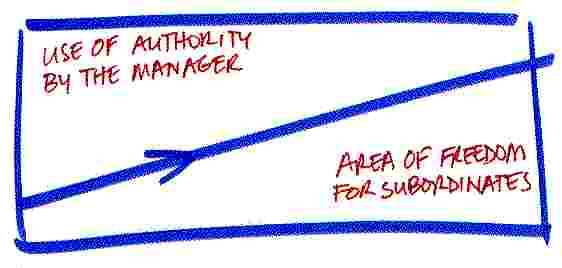 USE OF AUTHORITY
BY THE MANAGER
AREA OF FREEDOM
FOR SUBORDINATES